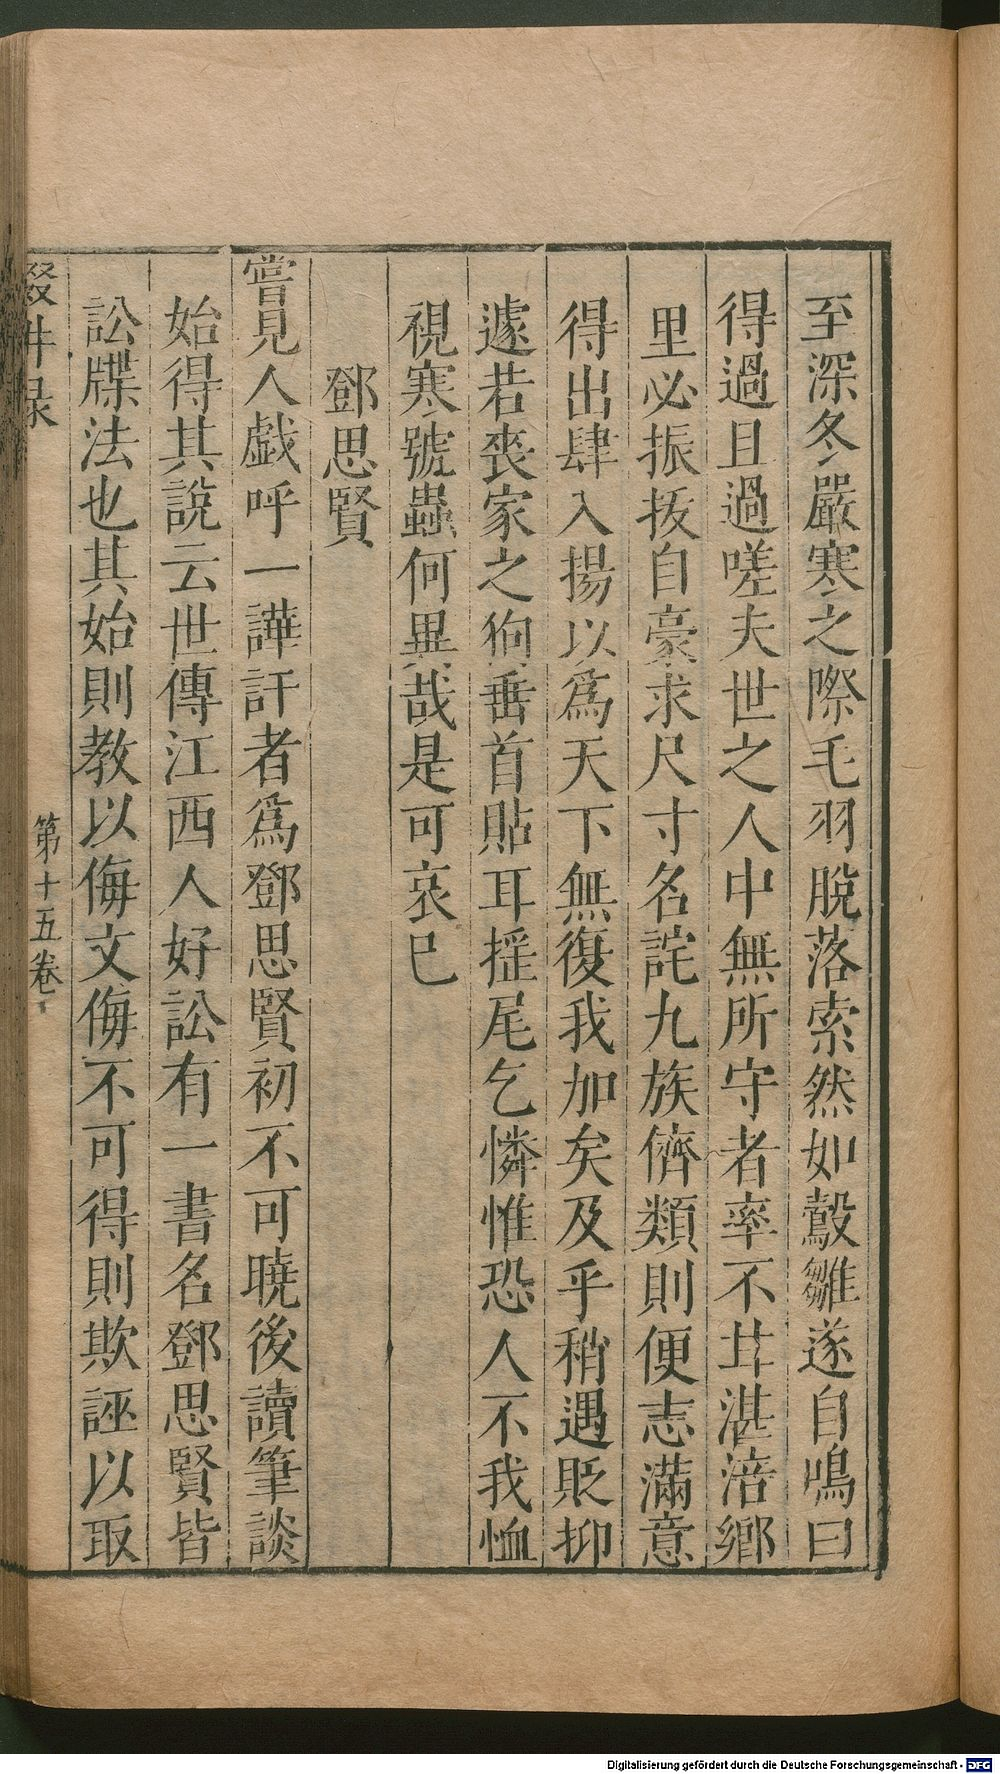 至深冬嚴寒之際毛羽脫落索然如鷇雛遂自鳴曰
得過且過嗟夫世之人中無所守者率不甘湛涪鄉
里必振拔自豪求尺寸名詫九族儕類則便志滿意
得出肆入揚以爲天下無復我加矣及乎稍遇貶抑
遽若喪家之狗垂首貼耳搖尾乞憐惟恐人不我恤
視寒號蟲何異哉是可哀已
鄧思賢
嘗見人戯呼一譁訐者爲鄧思賢初不可曉後讀筆談
始得其說云世傳江西人好訟有一書名鄧思賢皆
訟牒法也其始則教以侮文侮不可得則欺誣以取
輟畊録
第十五卷
Digitalisierung gefördert durch die Deutsche Forschungsgemeinschaft - DFG